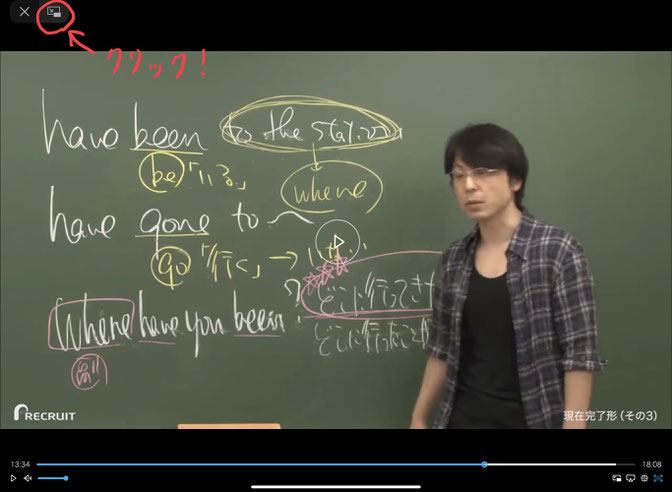 クリック！
have been to the station.
be「いる」
where
have gone to ～
go「行く」→
Where have you been? どこに行ってき
副
どこに行ったことが
RECRUIT
現在完了形（その3）
13:34
18:08